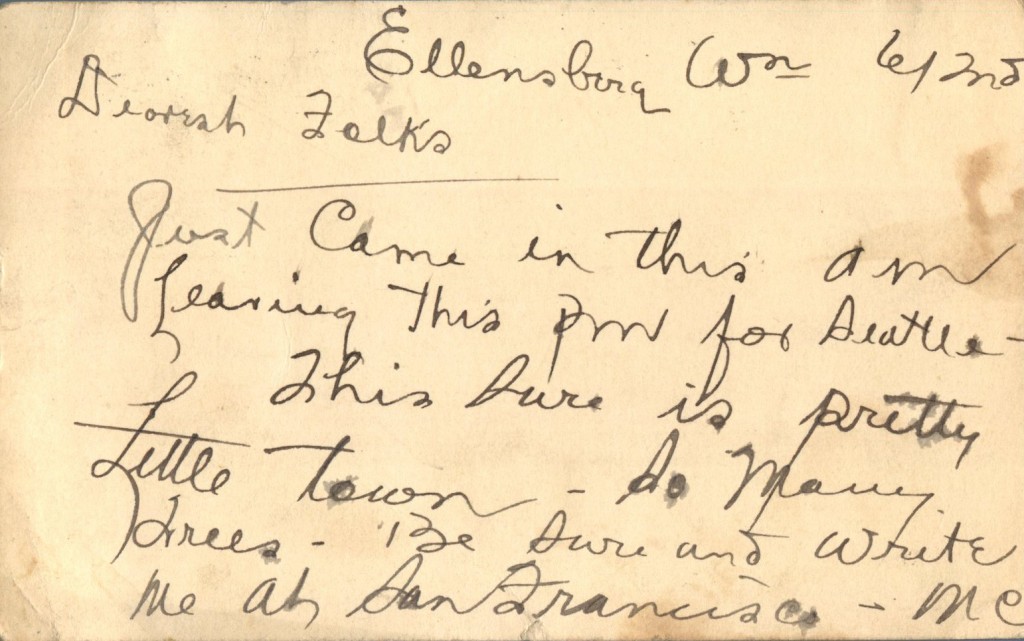 Ellensburg Wn 6/2nd
Dearest Folks
Just Came in this am
Leaving this pm for Seattle -
This sure is pretty
Little town - So Many
Trees - Be sure and write
me at San Francisco - MC